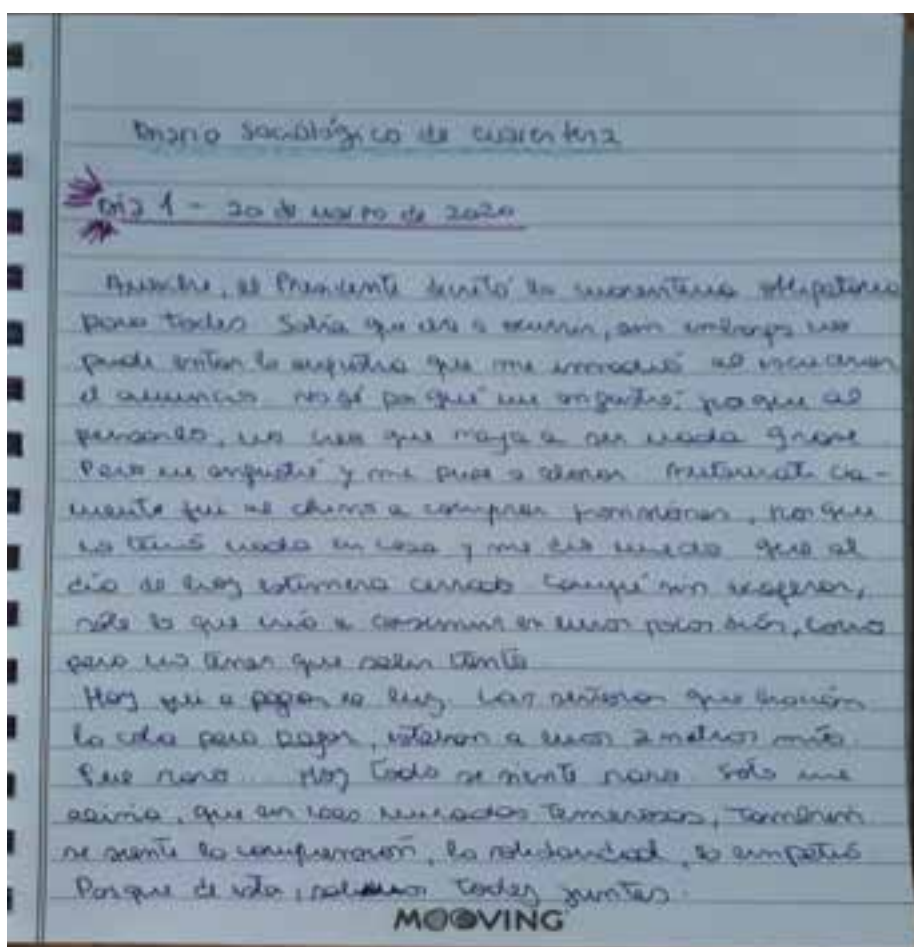 Diario sociológico de cuarentena
Día 1 - 20 de marzo de 2020
Anoche, el Presidente decretó la cuarentena obligatoria
para todes. Sabía que iba a ocurrir, sin embargo no
pude evitar la angustia que me invadió al escuchar
el anuncio. No sé por qué me angustié, porque al
pensarlo, no creo que vaya a ser nada grave.
Pero me angustié y me puse a Automáticia-
mente fui al chino a comprar provisiones, porque
no tenía nada en casa y me dio miedo que al
día de hoy estuviera cerrado. Compré sin exagerar,
sólo lo que iría a consumir en unos pocos días, como
para no tener que salir tanto.
Hoy fui a pagar la luz. Las señoras que hacían
la cola para pagar, estaban a unos 2 metros mío.
Fue raro... Hoy todo se siente raro. Solo me
alivia, que en esas miradas temerosas, también
se siente la comprensión, la solidaridad, la empatía
Porque de esta, salimos todes juntes.
MOOVING